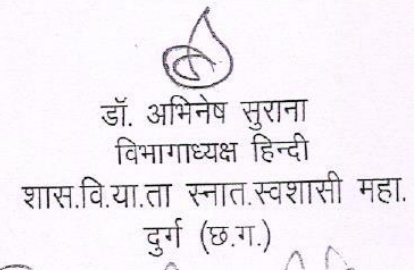 डॉ. अभिनेष सुराना
विभागाध्यक्ष हिन्दी
शास.वि.या.ता स्नात.स्वशासी महा.
दुर्ग (छ.ग.)